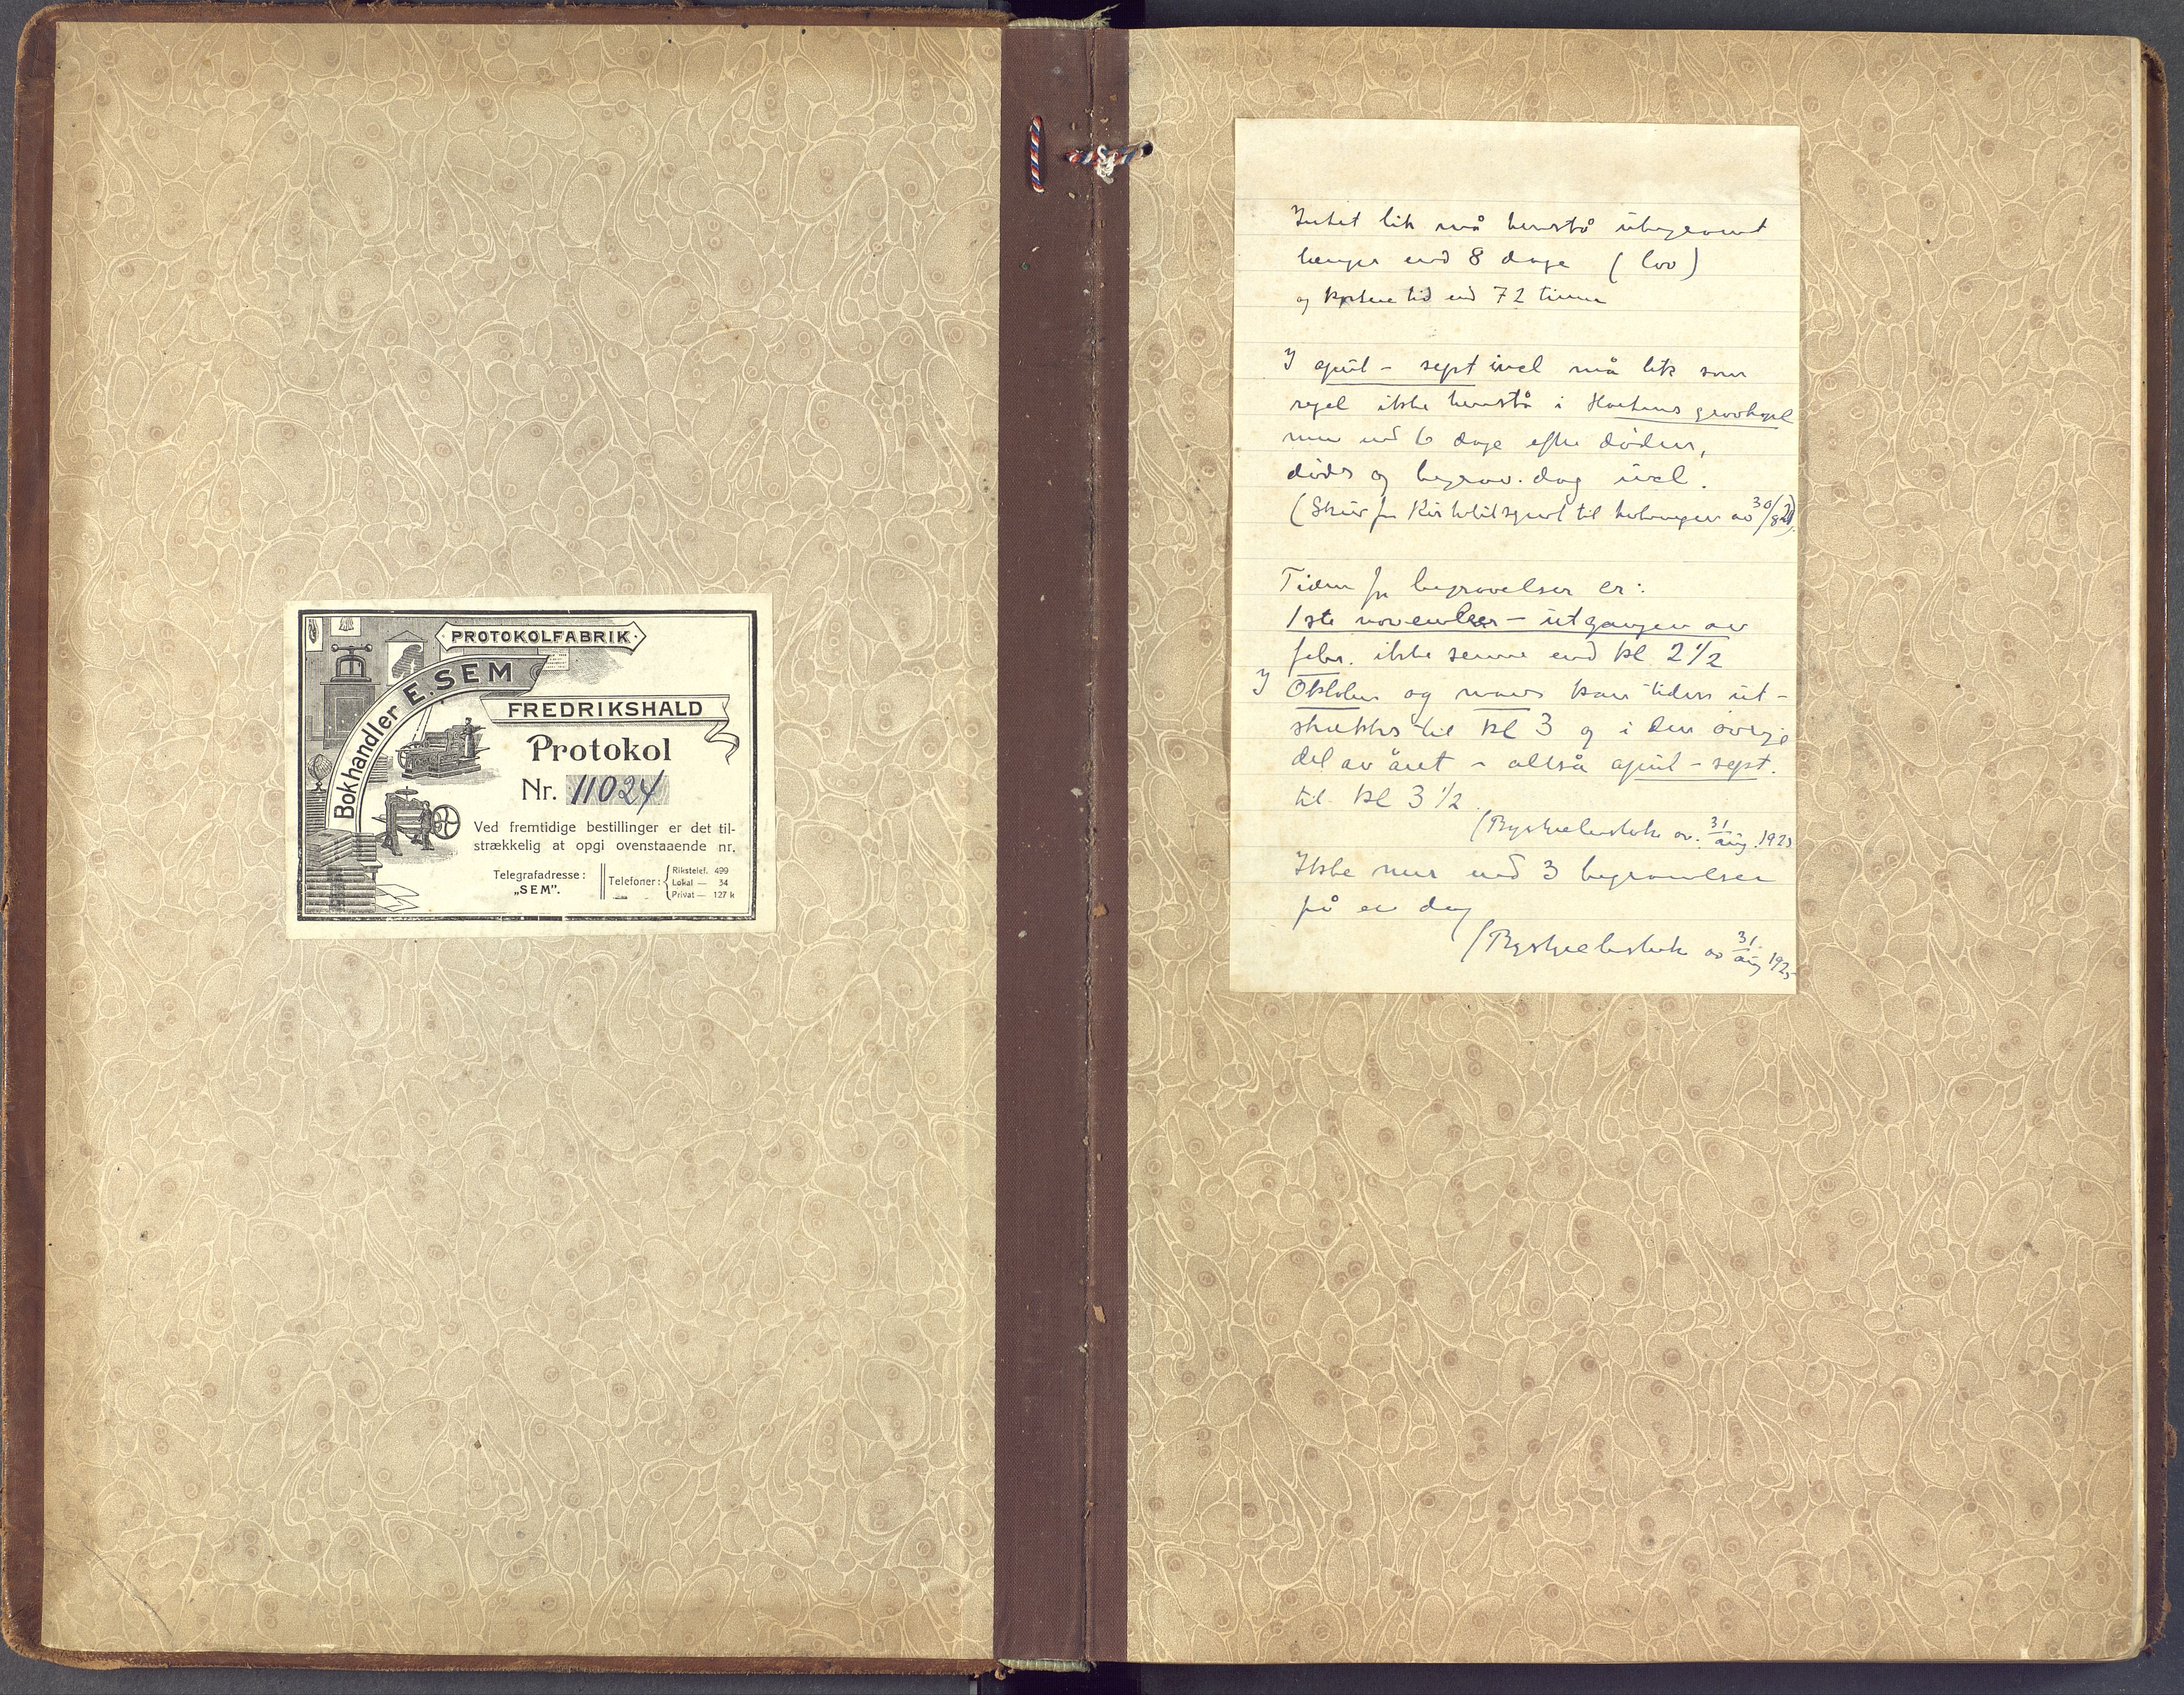 PROTOKOLFABRIK
Bokhandler E. SEM
FREDRIKSHALD
Protokol
Nr. 11024
Ved fremtidige bestillinger er det til-
strækkelig at opgi ovenstaaende nr.
Telegrafadresse:
„SEM".
Telefoner:
Rikstelef. 499
Lokal — 34
Privat — 127 k
Intet lik må henstå ubegravet
længer end 8 dage (lov)
og kortere tid end 72 timer
I april - sept incl må lik som
regel ikke henstå i Hortens gravkapel
mer end 6 dage efter døden,
døds og begrav. dag incl.
(Skriv fra Kirketilsynet til av 30/8
Tiden for begravelser er:
1ste november - utgangen av
febr. ikke senere end kl 2 1/2
I Oktober og mars kan tiden ut-
strækkes til kl 3 og i den øvrige
del av året - altså april - sept.
til kl 3 1/2.
(Bystyrebeslutn av 31/aug. 1925
Ikke mer end 3 begravelser
på en dag
(Bystyrebeslutn av 31/aug 1925